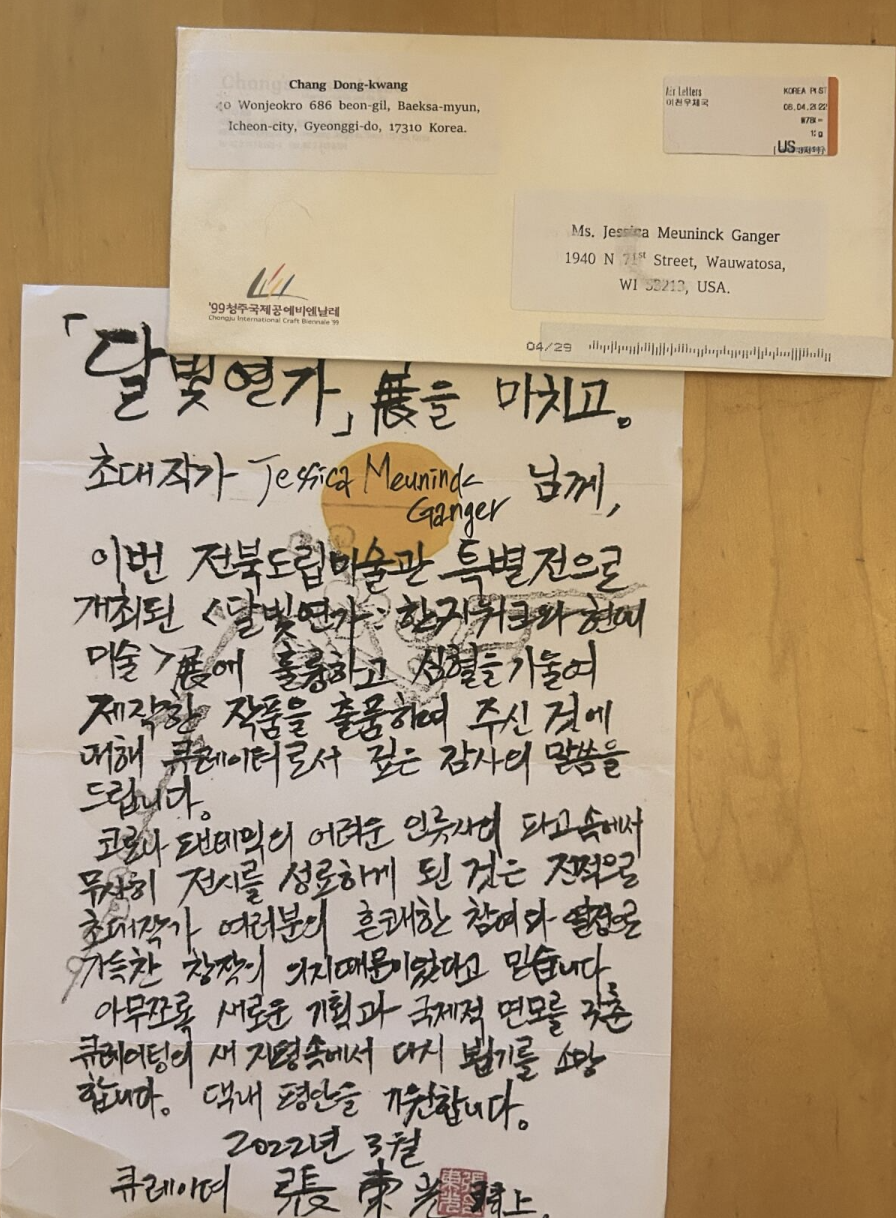 Chang Dong-kwang
Wonjeokro 686 beon-gil, Baeksa-myun,
Icheon-city, Gyeonggi-do, 17310 Korea.
Air Letters
이천우체국
KOREA POST
US
Ms. Jessica Meuninck Ganger
1940 N 71st Street, Wauwatosa,
WI 53213, USA.
'99청주국제공예비엔날레
Chongju International Craft Biennale '99
04/29
「달빛연가」展을 마치고。
초대작가 Jessica Meuninck
Ganger 님께,
이번 전북도립미술관 특별전으로
개최된 <달빛연가: 한지워크와 현대
미술>展에 훌륭하고 심혈을 기울여
제작한 작품을 출품하여 주신 것에
대해 큐레이터로서 깊은 감사의 말씀을
드립니다。
코로나 팬데믹의 어려운 인류사의 파고속에서
무사히 전시를 성료하게 된 것은 전적으로
초대작가 여러분의 흔쾌한 참여와 열정으로
가득찬 창작의 의지때문이었다고 믿습니다
아무쪼록 새로운 기획과 국제적 면모를 갖춘
큐레이팅의 새 지형속에서 다시 뵙기를 소망
합니다。 댁내 평안을 기원합니다。
2022년 3월
큐레이터 張東光 拜上.